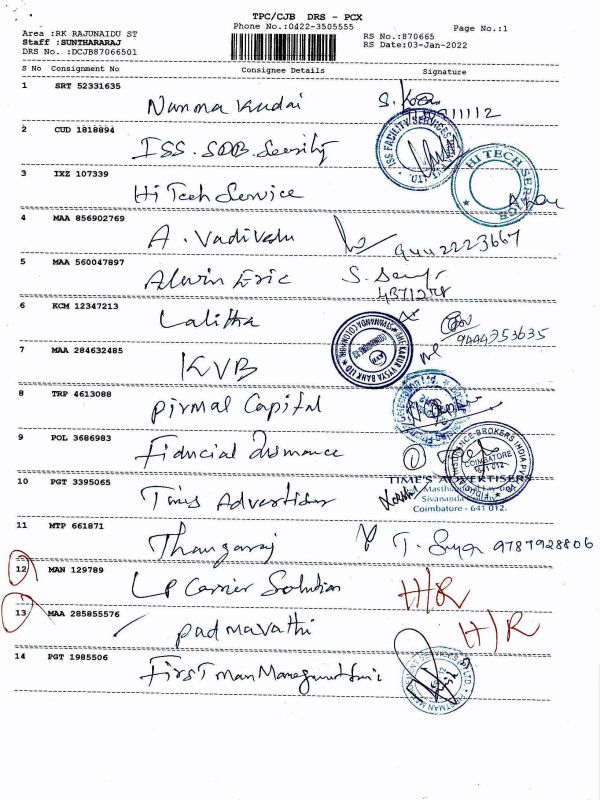 TPC/CJB DRS - PCX
Phone No.:0422-3505555
Page No.:1
Area :RK RAJUNAIDU ST
Staff :SUNTHARARAJ
DRS No. :DCJB87066501
RS No.:870665
RS Date:03-Jan-2022
S No Consignment No Consignee Details Signature
1 SRT 52331635
Nanma Kudai
2 CUD 1818894
ISS. SDB. Security
ISS FACILITY SERVICES
3 IXZ 107339
Hi Tech Service
HI TECH SERVICE
4 MAA 856902769
A. Vadivelu 9442223667
5 MAA 560047897
Alwin Eric
6 KCM 12347213
Lalitha
9444353635
7 MAA 284632485
KVB
THE KARUR VYSYA BANK LTD
8 TRP 4613088
Pirmal Capital
9 POL 3686983
Fiducial
INSURANCE BROKERS INDIA PVT
COIMBATORE
641 012
10 PGT 3395065
Times Advertiser
TIME'S ADVERTISERS
Sivananda
Coimbatore - 641 012.
11 MTP 661871
Thangaraj T. Surya 9787928806
12 MAN 129789
LP Carrier Solution H/R
13 MAA 285855576
Padmavathi H/R
14 PGT 1985506
First man